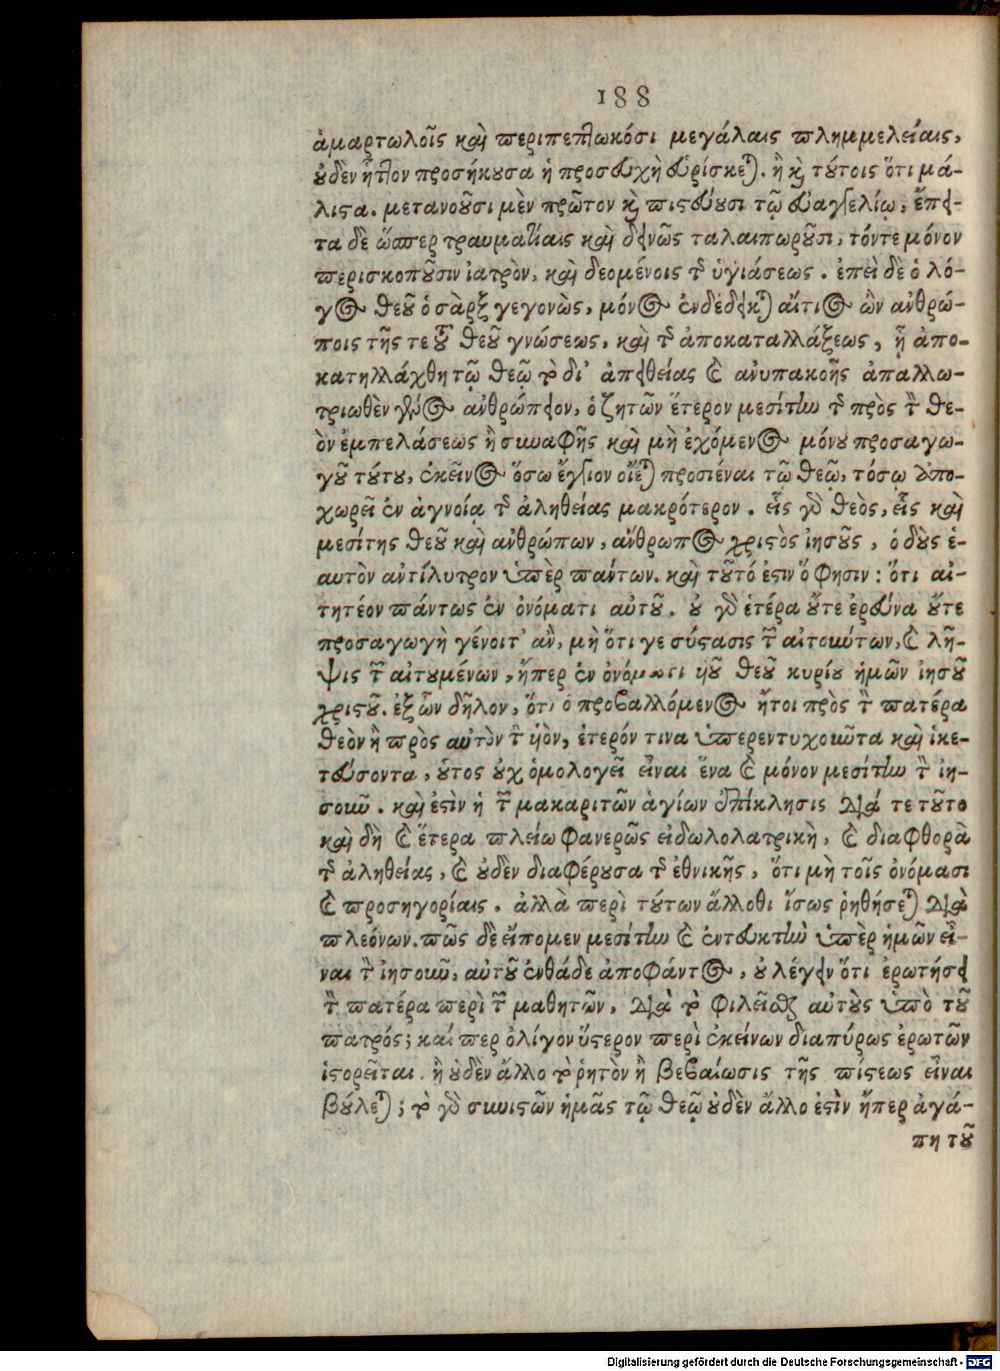 188
ἁμαρτωλοῖς καὶ περιπεπτωκόσι μεγάλαις πλημμελείαις,
οὐδὲν ἧττον προσήκουσα ἡ προσευχὴ εὑρίσκεται. ἢ καὶ τούτοις ὅτι μά-
λιστα. μετανοοῦσι μὲν πρῶτον καὶ πιστεύουσι τῷ εὐαγγελίῳ, ἔπει-
τα δὲ ὥσπερ τραυματίαις καὶ δεινῶς ταλαιπωροῦσι, τόντε μόνον
περισκοποῦσιν ἰατρὸν, καὶ δεομένοις τῆς ὑγιάσεως. ἐπεὶ δὲ ὁ λό-
γος θεοῦ ὁ σὰρξ γεγονὼς, μόνος ἐνδέδεικται αἴτιος ὢν ἀνθρώ-
ποις τῆς τε τοῦ θεοῦ γνώσεως, καὶ τῆς ἀποκαταλλάξεως, ᾗ ἀπο-
κατηλλάχθη τῷ θεῷ τὸ δι' ἀπειθείας καὶ ἀνυπακοῆς ἀπαλλο-
τριωθὲν γένος ἀνθρώπειον, ὁ ζητῶν ἕτερον μεσίτην τῆς πρὸς τὸν θε-
ὸν ἐμπελάσεως ἢ συναφῆς καὶ μὴ ἐχόμενος μόνου προσαγω-
γοῦ τούτου, ἐκεῖνος ὅσω ἔγγιον οἴεται προσιέναι τῷ θεῷ, τόσῳ ἀπο-
χωρεῖ ἐν ἀγνοίᾳ τῆς ἀληθείας μακρότερον. εἷς γὰρ θεὸς, εἷς καὶ
μεσίτης θεοῦ καὶ ἀνθρώπων, ἄνθρωπος χριστὸς ἰησοῦς, ὁ δοὺς ἑ-
αυτὸν ἀντίλυτρον ὑπὲρ πάντων. καὶ τοῦτό ἐστιν ὅ φησιν: ὅτι αἰ-
τητέον πάντως ἐν ὀνόματι αὐτοῦ. οὐ γὰρ ἑτέρα οὔτε ἐρεύνα οὔτε
προσαγωγὴ γένοιτ' ἂν, μὴ ὅτι γε σύστασις τῶν αἰτούντων, καὶ λῆ-
ψις τῶν αἰτουμένων, ἤπερ ἐν ὀνόματι υἱοῦ θεοῦ κυρίου ἡμῶν ἰησοῦ
χριστοῦ. ἐξ ὧν δῆλον, ὅτι ὁ προβαλλόμενος ἤτοι πρὸς τὸν πατέρα
θεὸν ἢ πρὸς αὐτὸν τὸν υἱὸν, ἑτερόν τινα ὑπερεντυχοῦντα καὶ ἱκε-
τεύσοντα, οὗτος οὐχ ὁμολογεῖ εἶναι ἕνα καὶ μόνον μεσίτην τὸν ἰη-
σοῦν. καὶ ἐστὶν ἡ τῶν μακαριτῶν ἁγίων ἐπίκλησις διά τε τοῦτο
καὶ δὴ καὶ ἕτερα πλείω φανερῶς εἰδωλολατρικὴ, καὶ διαφθορὰ
τῆς ἀληθείας, καὶ οὐδὲν διαφέρουσα τῆς ἐθνικῆς, ὅτι μὴ τοῖς ὀνόμασι
καὶ προσηγορίαις. ἀλλὰ περὶ τούτων ἄλλοθι ἴσως ῥηθήσεται διὰ
πλεόνων. πῶς δὲ εἴπομεν μεσίτην καὶ ἐντευκτὴν ὑπὲρ ἡμῶν εἶ-
ναι τὸν ἰησοῦν, αὐτοῦ ἐνθάδε ἀποφάντος, οὐ λέγειν ὅτι ἐρωτήσει
τὸν πατέρα περὶ τῶν μαθητῶν, διὰ τὸ φιλεῖσθαι αὐτοὺς ὑπὸ τοῦ
πατρός; καί περ ὀλίγον ὕστερον περὶ ἐκείνων διαπύρως ἐρωτῶν
ἱστορεῖται. ἢ οὐδὲν ἄλλο τὸ ῥητὸν ἢ βεβαίωσις τῆς πίστεως εἶναι
βούλεται; τὸ γὰρ συνιστῶν ἡμᾶς τῷ θεῷ οὐδὲν ἄλλο ἐστὶν ἤπερ ἀγά-
πη τοῦ
Digitalisierung gefördert durch die Deutsche Forschungsgemeinschaft - DFG